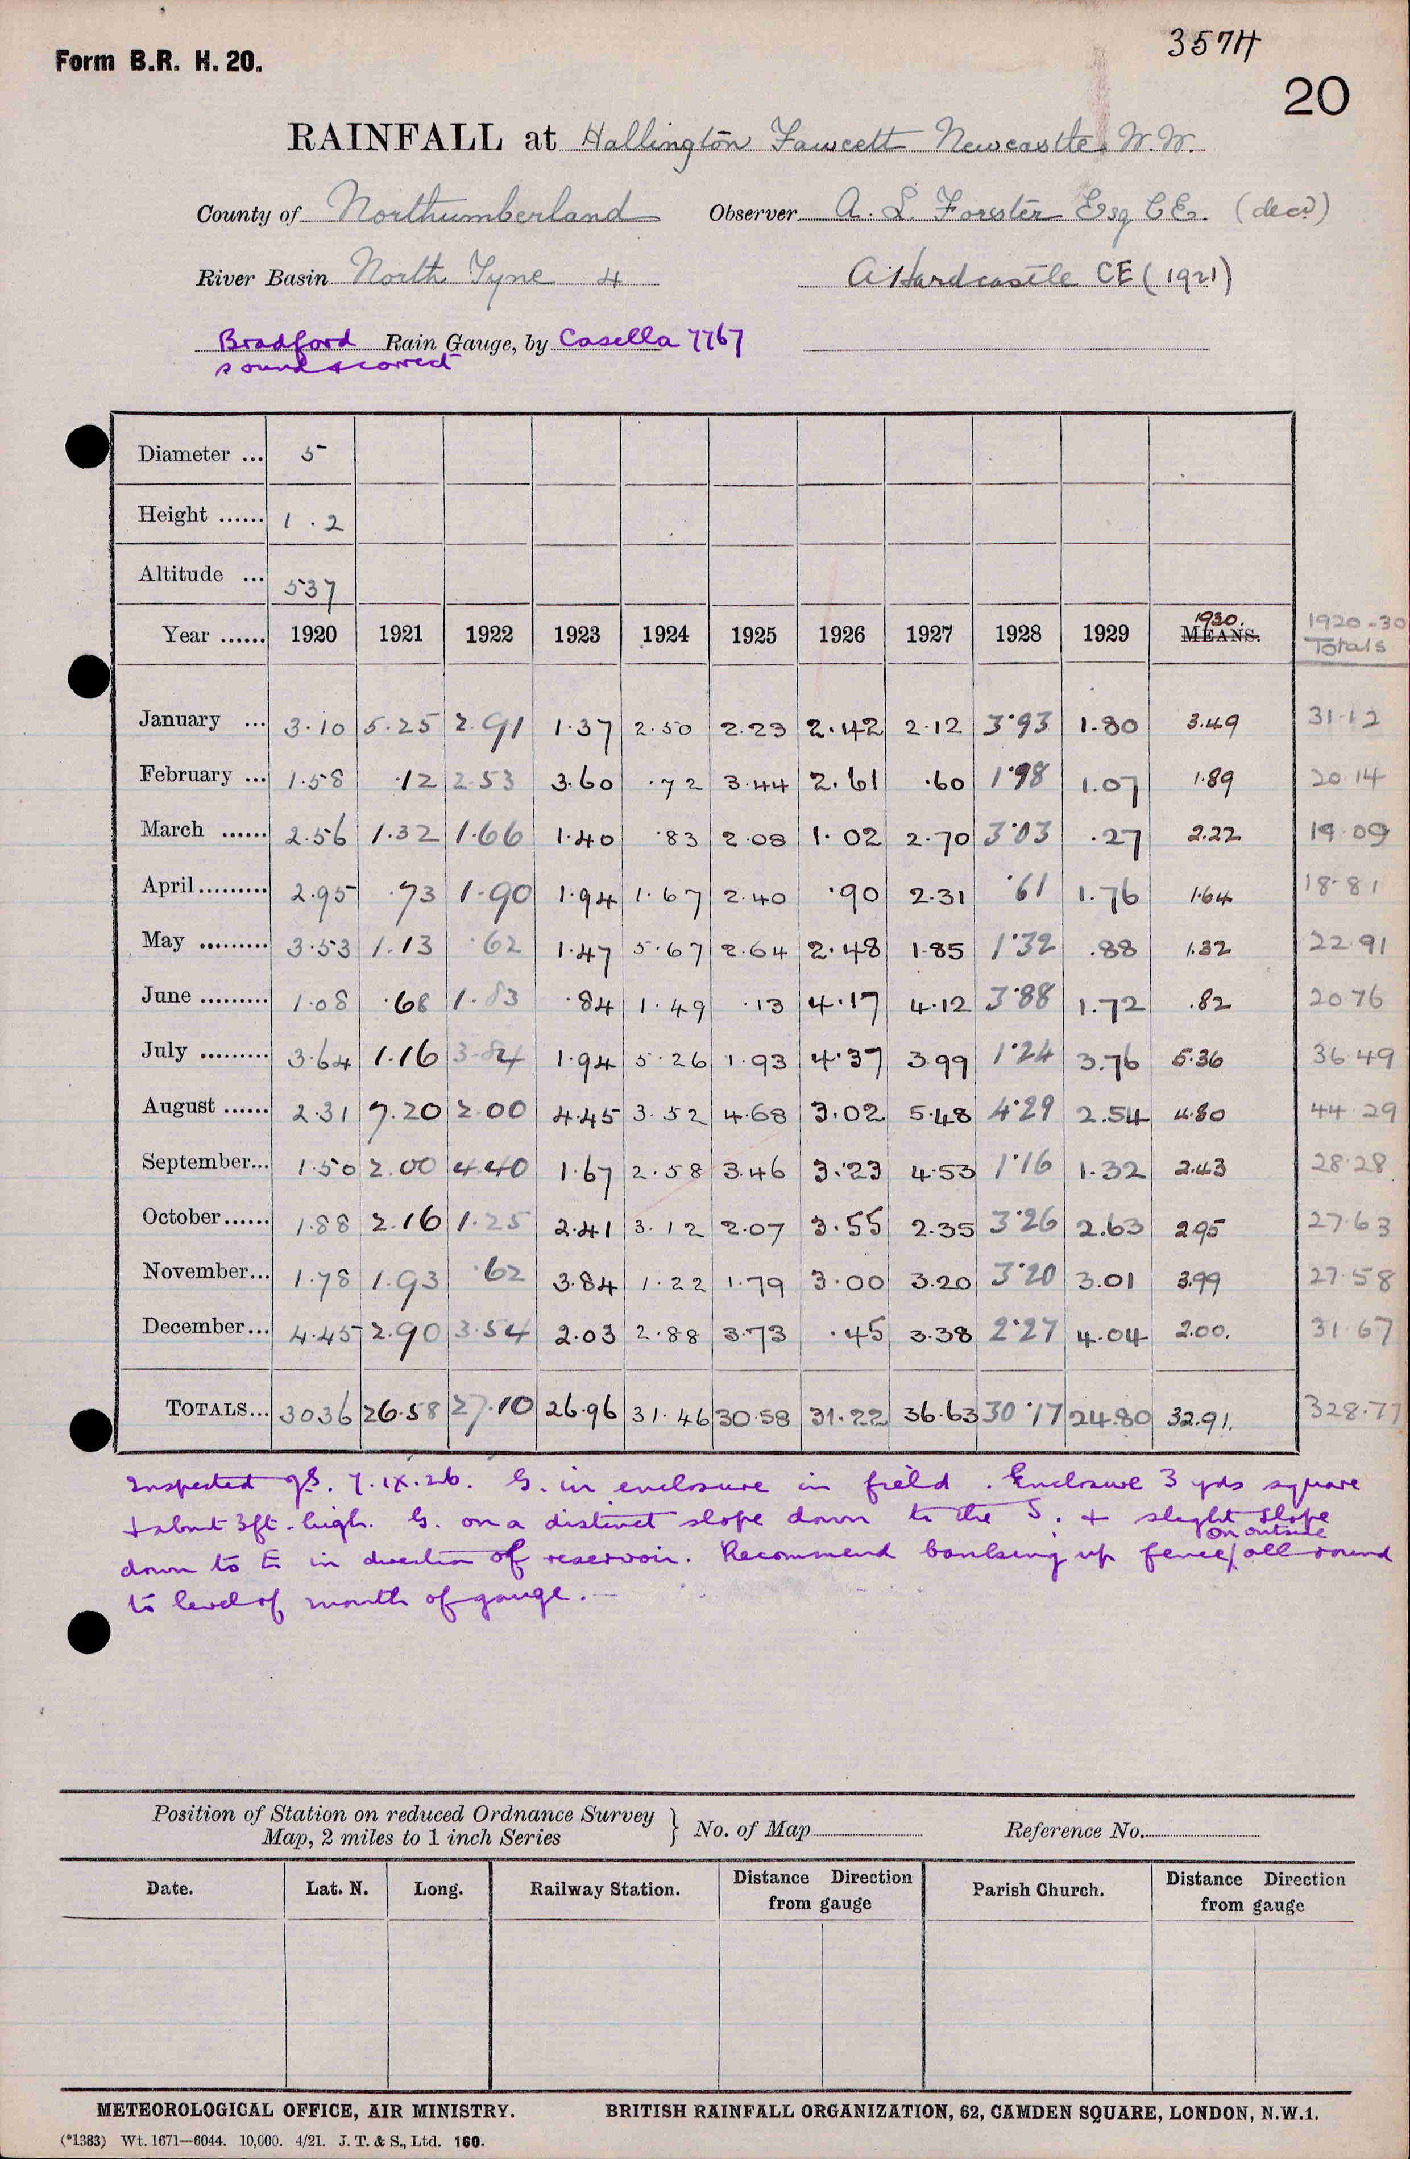 3574
Form B.R. H. 20.
20
RAINFALL at Hallington Fawcett Newcastle W.W.
County of Northumberland Observer A. L. Forster Esq C.E. (decd)
River Basin North Tyne 4 A Hardcastle CE (1921)
Bradford Rain Gauge, by Casella 7767
sound & correct
Diameter ... 5
Height ...... 1.2
Altitude ... 537
Year ...... 1920 1921 1922 1923 1924 1925 1926 1927 1928 1929 1930. MEANS. 1920-30 Totals
January ... 3.10 5.25 2.91 1.37 2.50 2.23 2.42 2.12 3.93 1.80 3.49 31.12
February ... 1.58 .12 2.53 3.60 .72 3.44 2.61 .60 1.98 1.07 1.89 20.14
March ...... 2.56 1.32 1.66 1.40 .83 2.08 1.02 2.70 3.03 .27 2.22 19.09
April ......... 2.95 .73 1.90 1.94 1.67 2.40 .90 2.31 .61 1.76 1.64 18.81
May ......... 3.53 1.13 .62 1.47 5.67 2.64 2.48 1.85 1.32 .88 1.32 22.91
June ......... 1.08 .68 1.83 .84 1.49 .13 4.17 4.12 3.88 1.72 .82 20.76
July ......... 3.64 1.16 3.84 1.94 5.26 1.93 4.37 3.99 1.24 3.76 5.36 36.49
August ...... 2.31 7.20 2.00 4.45 3.52 4.68 3.02 5.48 4.29 2.54 4.80 44.29
September... 1.50 2.00 4.40 1.67 2.58 3.46 3.23 4.53 1.16 1.32 2.43 28.28
October...... 1.88 2.16 1.25 2.41 3.12 2.07 3.55 2.35 3.26 2.63 2.95 27.63
November... 1.78 1.93 .62 3.84 1.22 1.79 3.00 3.20 3.20 3.01 3.99 27.58
December... 4.45 2.90 3.54 2.03 2.88 3.73 .45 3.38 2.27 4.04 2.00. 31.67
TOTALS... 30 36 26.58 27.10 26.96 31.46 30.58 31.22 36.63 30.17 24.80 32.91. 328.77
Inspected 7.ix.26. G. in enclosure in field. Enclosure 3 yds square
& about 3ft. high. G. on a distinct slope down to the S. & slight slope
on outside
down to E in direction of reservoir. Recommend banking up fence all round
to level of mouth of gauge.
Position of Station on reduced Ordnance Survey
Map, 2 miles to 1 inch Series } No. of Map Reference No.
Date. Lat. N. Long. Railway Station. Distance Direction from gauge Parish Church. Distance Direction from gauge
METEOROLOGICAL OFFICE, AIR MINISTRY. BRITISH RAINFALL ORGANIZATION, 62, CAMDEN SQUARE, LONDON, N.W.1.
(*1383) Wt. 1671—6044. 10,000. 4/21. J. T. & S., Ltd. 160.